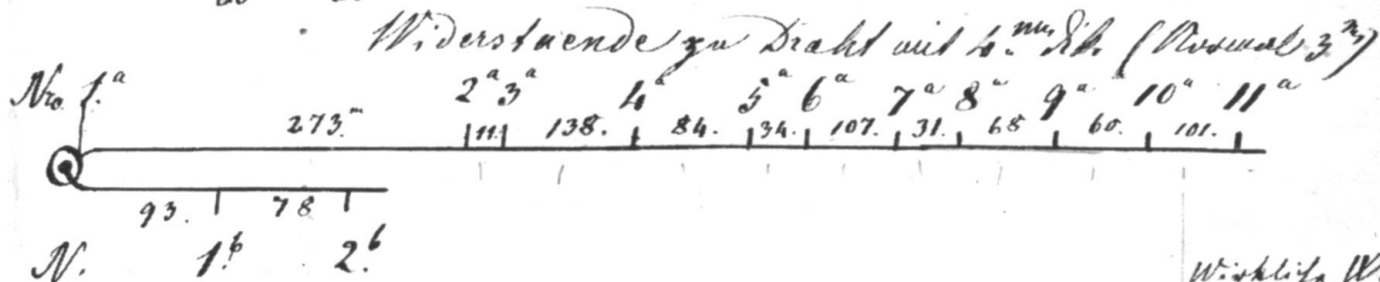 Widerstaende zu Draht mit 4.mm Dik. (Normal 3.m)
Nro. 1.a 2a 3a 4a 5a 6a 7a 8a 9a 10a 11a
273.m 11. 138. 84. 34. 107. 31. 68 60. 101.
93. 78
N. 1.b 2.b
Wirkliche W.